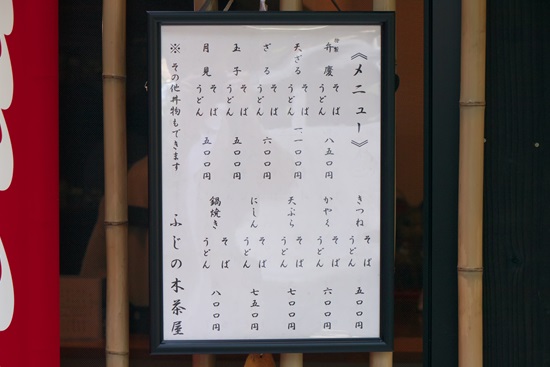 《メニュー》
弁慶 そば うどん 八五〇円
天ざる そば うどん 一一〇〇円
ざる そば うどん 六〇〇円
玉子 そば うどん 五〇〇円
月見 そば うどん 五〇〇円
※その他丼物もできます
きつね そば うどん 五〇〇円
かやく そば うどん 六〇〇円
天ぷら そば うどん 七〇〇円
にしん そば うどん 七五〇円
鍋焼き そば うどん 八〇〇円
ふじの木茶屋